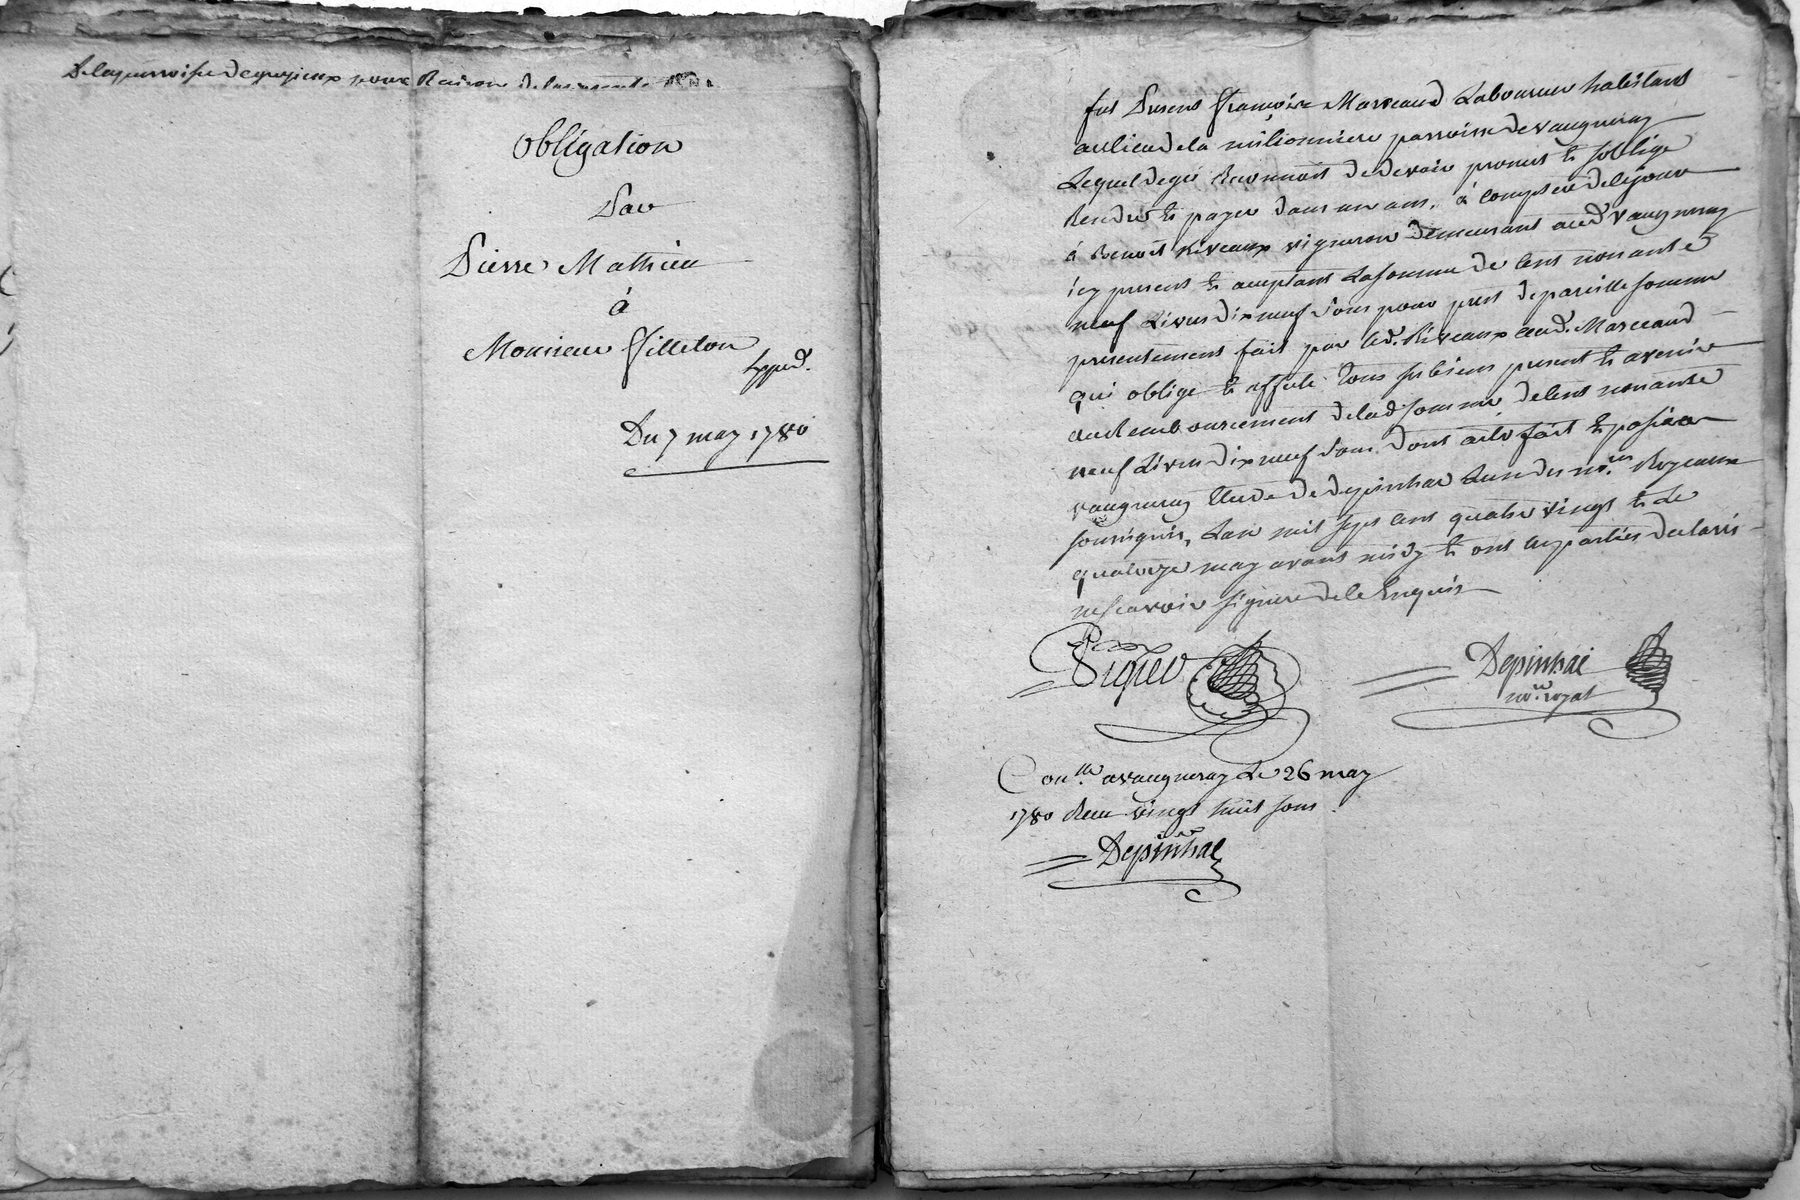 Delaparroisse degrezieux pour Raison delaprésente
Obligation
Par
Pierre Mathieu
à
Monsieur Filleton
Expd.
Du 7 may 1780
fut Present françois Marceaud Laboureur habitant
aulieudela milionniere parroisse devaugneray
Lequeldegré Reconnoit dedevoir promet et soblige
Rendre et payer dans un an, à compter decejour
à Benoit Riveaux vigneron demeurant aud vaugneray
icy present et acceptant Lasomme de cent nonante
neuf Livres dixneuf sous pour prest depareille somme
presentement fait par led. Riveaux aud. Marceaud
qui oblige et affecte tous ses biens present et avenir
au Remboursement delad somme decent nonante
neuf Livres dixneuf sous. dont acte fait et passé a
vaugneray Etude de depinhac Lundes nores. Royeaux
soussignés, Lan mil sept cent quatre vingt et Le
quatorze may avant midy et ont les parties declarés
nescavoir signer dece Enquis
Piquet
Depinhac
nore. royal
Conlle avaugneray Le 26 may
1780 Recu vingt huit sous
Depinhac